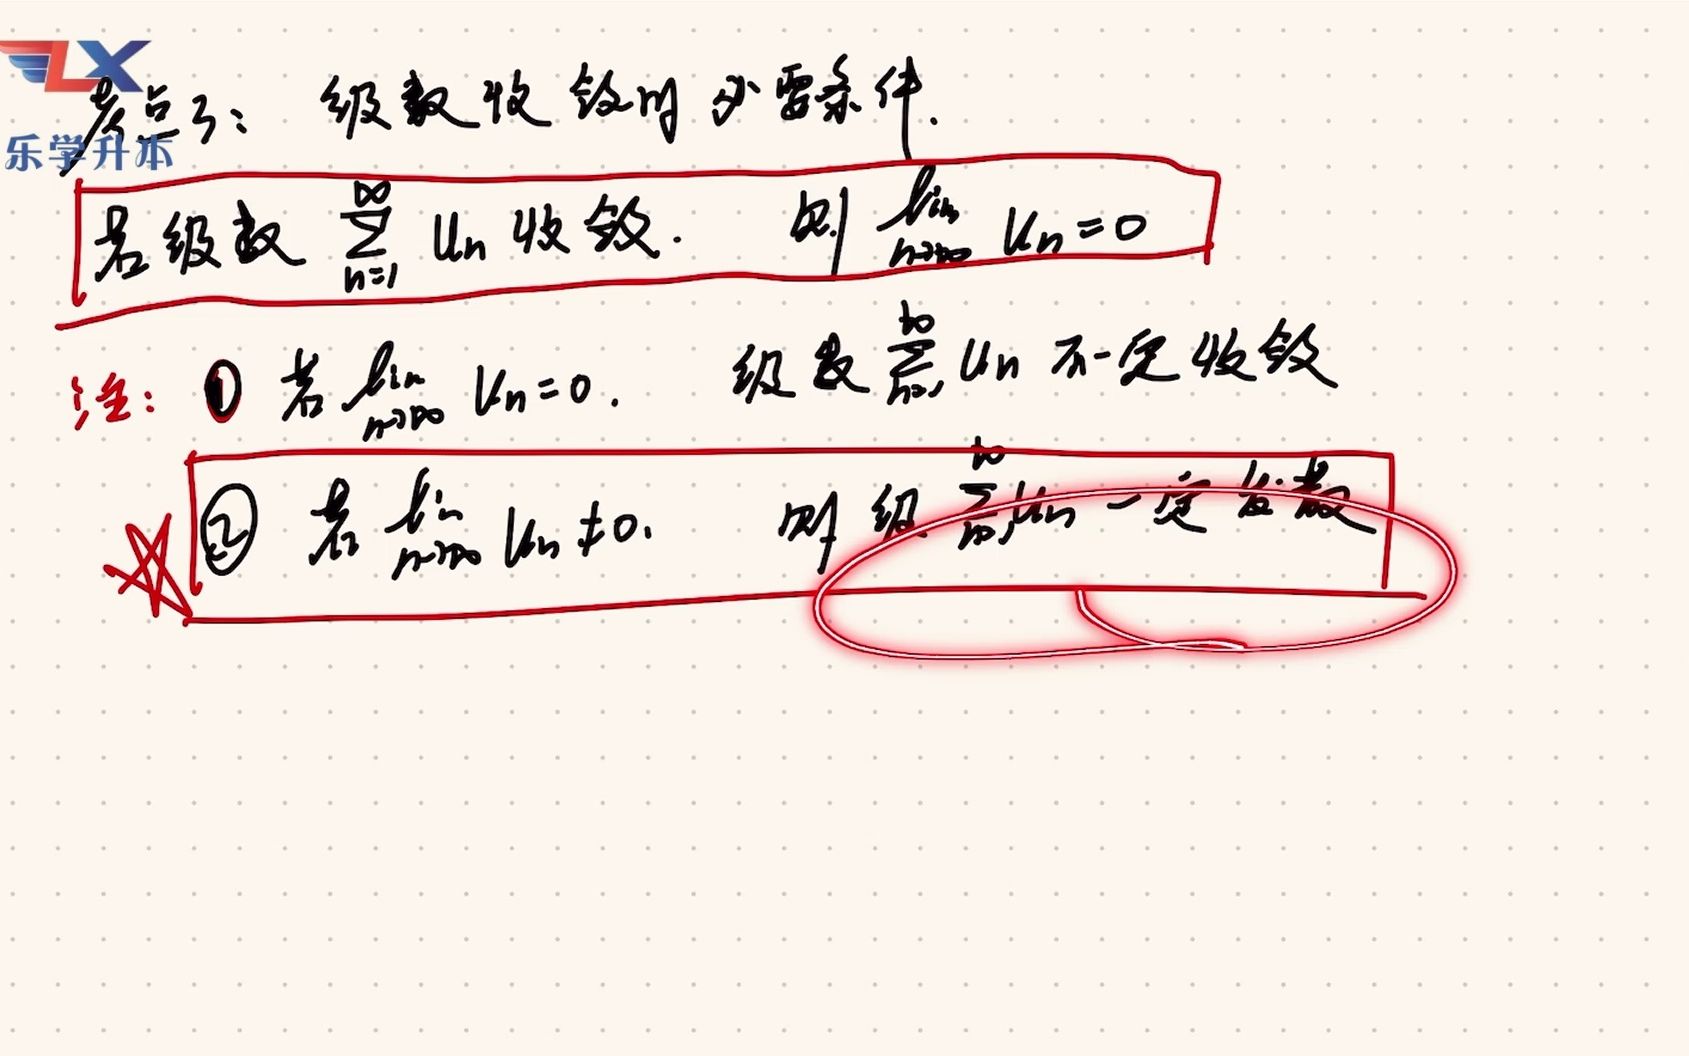 LX
乐学升本
考点3: 级数收敛的必要条件.
若级数 ∞∑n=1 Un 收敛. 则 lim n→∞ Un=0
注: ① 若 lim n→∞ Un=0. 级数 ∞∑n=1 Un 不一定收敛
② 若 lim n→∞ Un≠0. 则级 ∞∑n=1 Un 一定发散